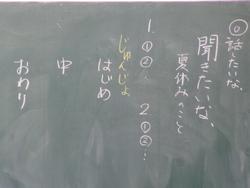 ◎話したいな、
聞きたいな、
夏休みのこと
1.①②…2①②…
じゅんじょ
はじめ
中
おわり